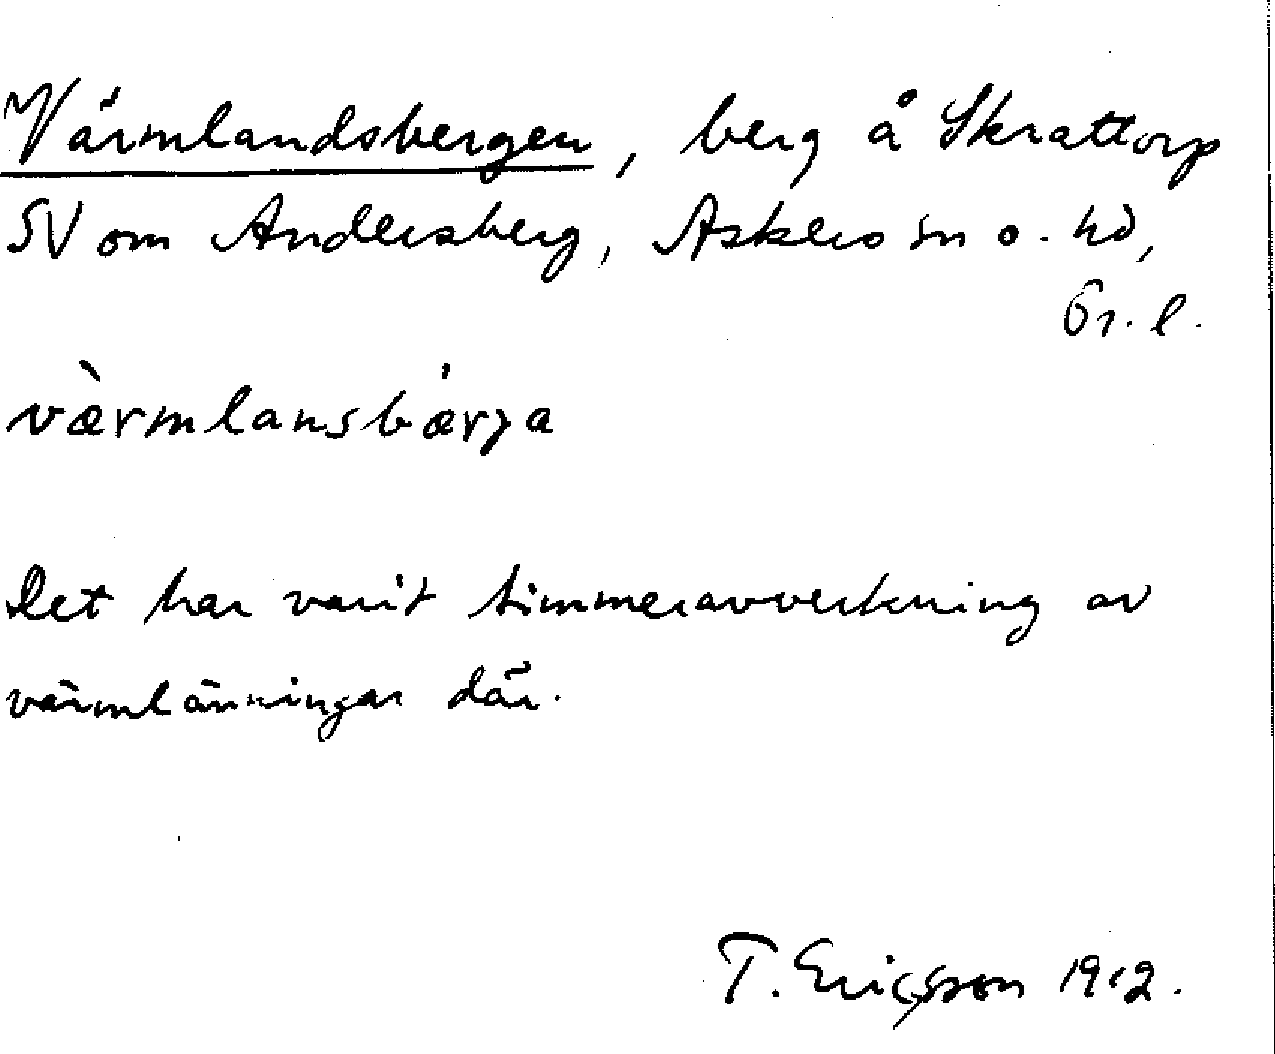 Värmlandsbergen, berg å Skrattorp
SV om Andersberg, Askers sn o. hd,
Ör. l.
værmlansbærja
Det har varit timmeravverkning av
värmlänningar där.
T. Ericsson 1912.